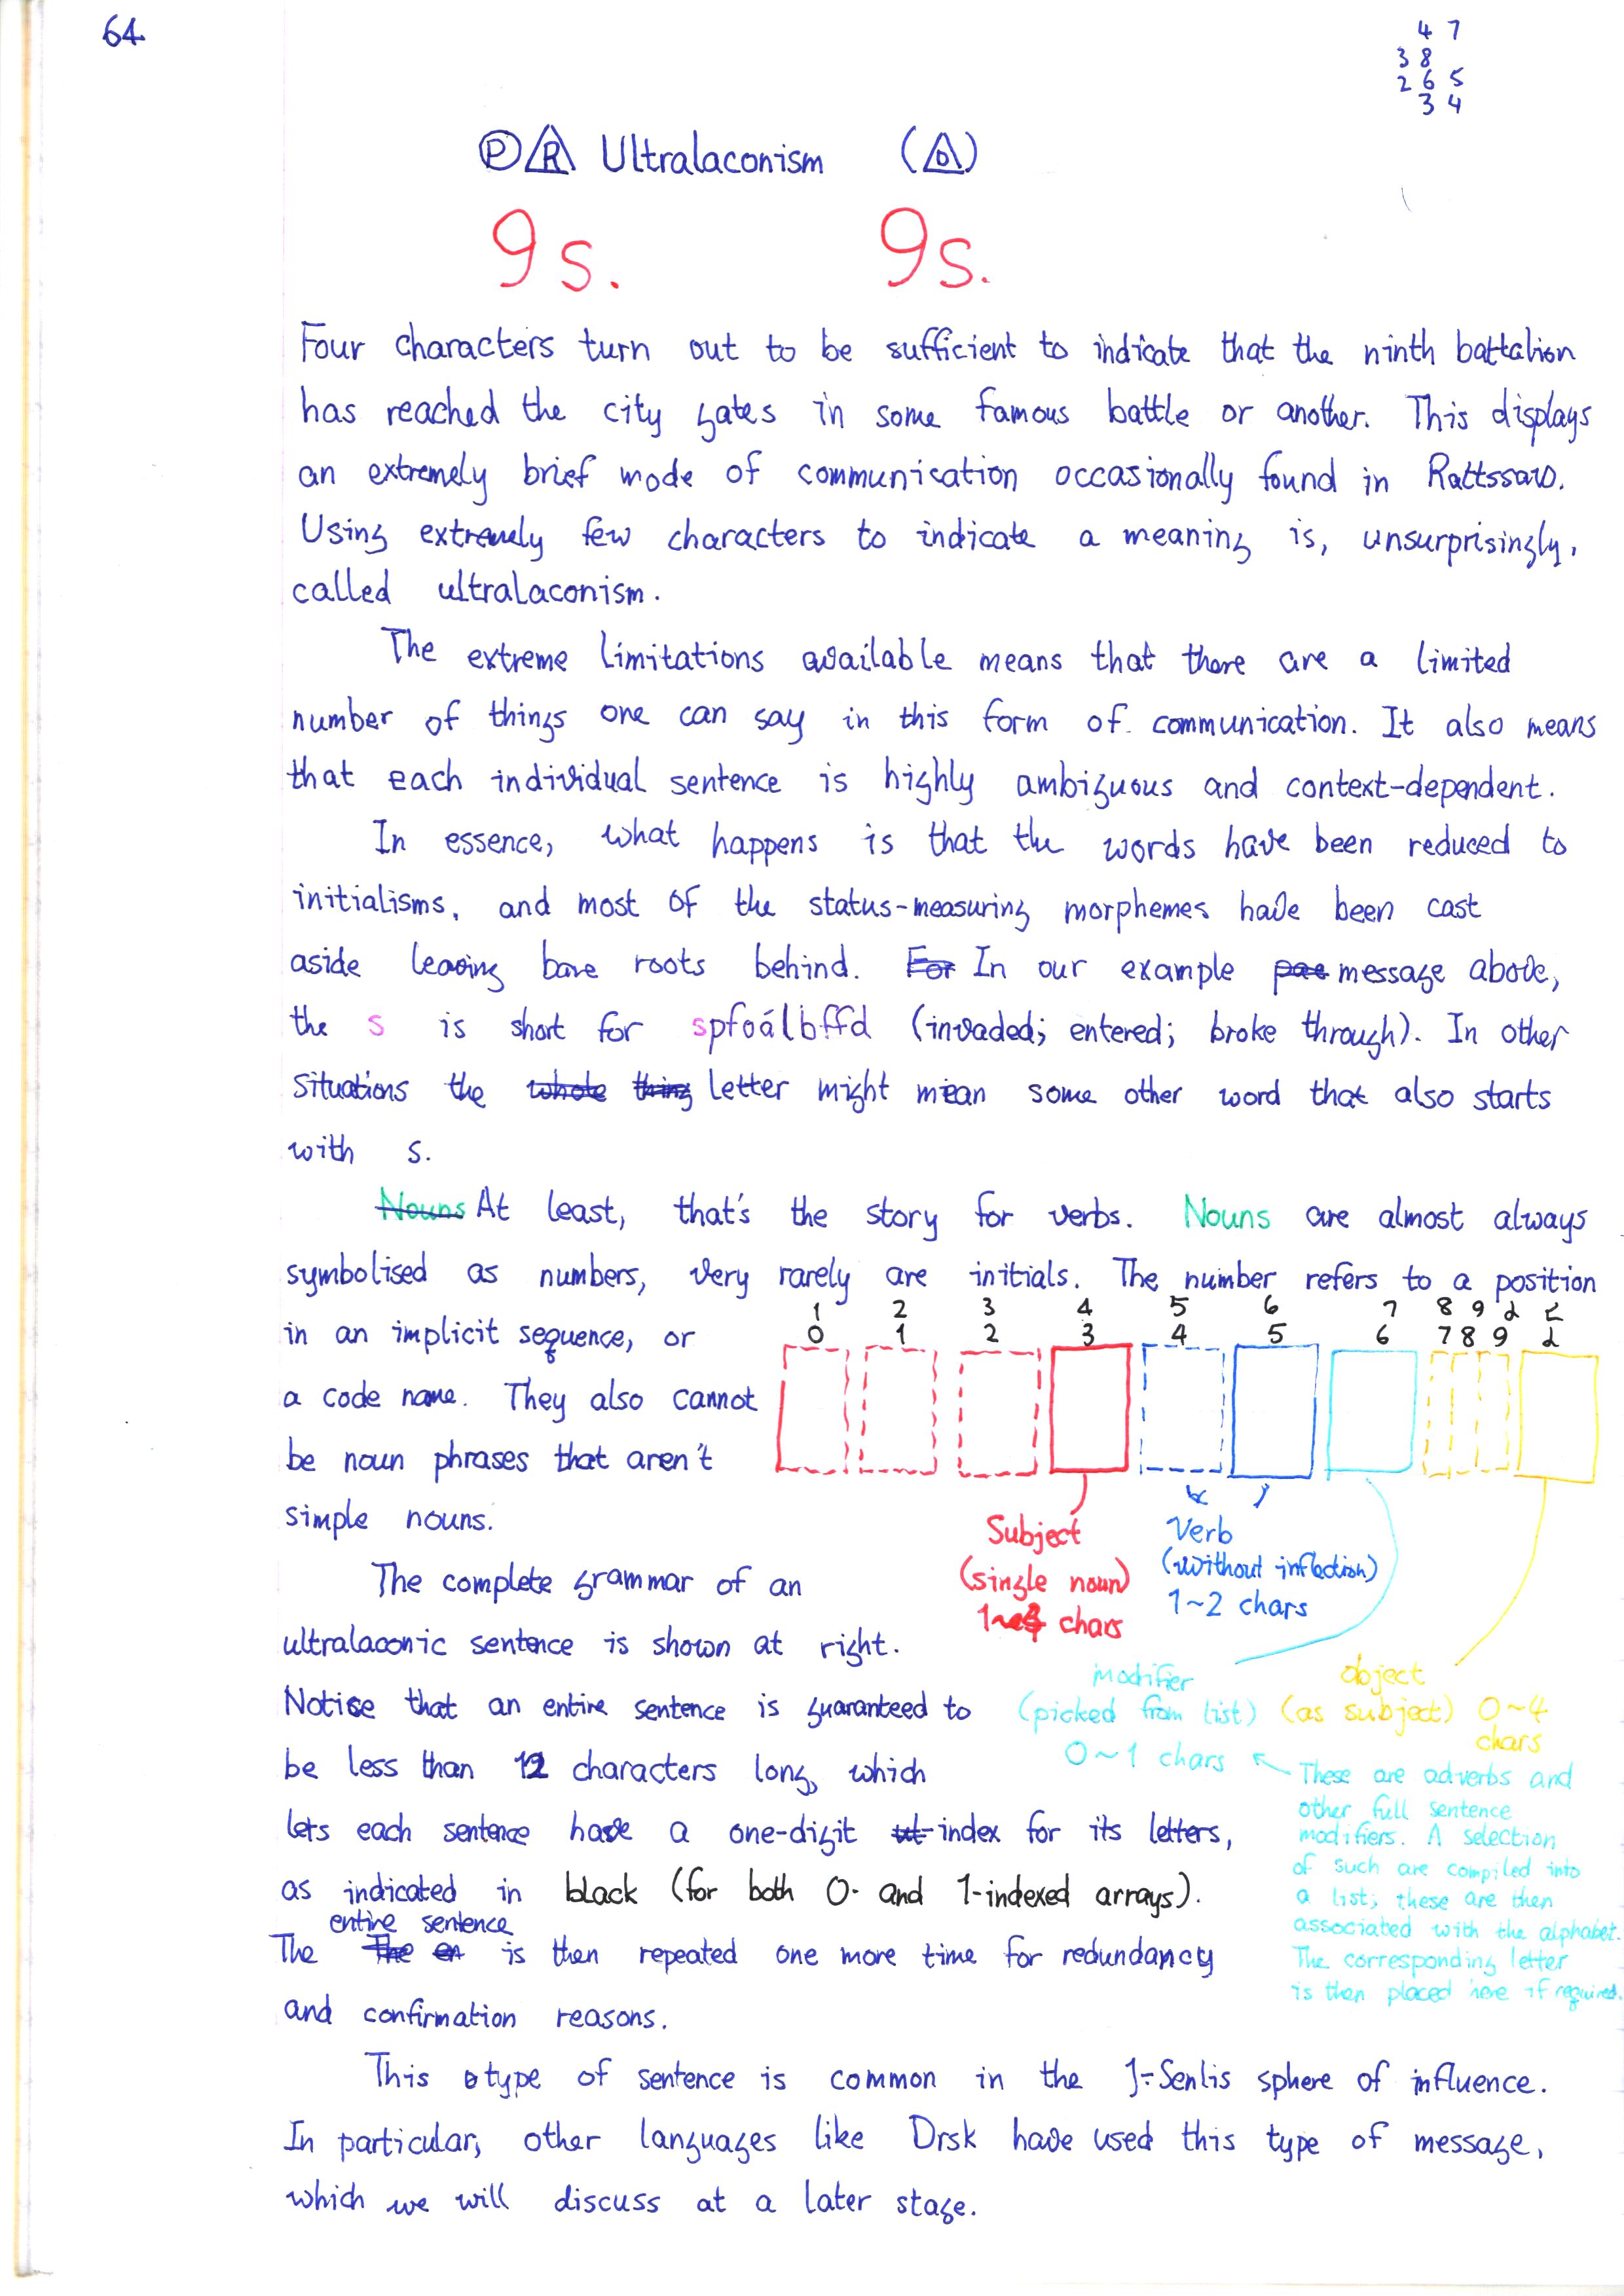 64
4 7
3 8
2 6 5
3 4
P R Ultralaconism (D)
9s. 9s.
Four characters turn out to be sufficient to indicate that the ninth battalion
has reached the city gates in some famous battle or another. This displays
an extremely brief mode of communication occasionally found in Rattssaw.
Using extremely few characters to indicate a meaning is, unsurprisingly,
called ultralaconism.
The extreme limitations available means that there are a limited
number of things one can say in this form of communication. It also means
that each individual sentence is highly ambiguous and context-dependent.
In essence, what happens is that the words have been reduced to
initialisms, and most of the status-measuring morphemes have been cast
aside leaving bare roots behind. For In our example pae message above,
the s is short for spfoálbffd (invaded; entered; broke through). In other
situations the whole thing letter might mean some other word that also starts
with s.
Nouns At least, that's the story for verbs. Nouns are almost always
symbolised as numbers, very rarely are initials. The number refers to a position
in an implicit sequence, or
a code name. They also cannot
be noun phrases that aren't
simple nouns.
1 2 3 4 5 6 7 8 9 d Ɛ
0 1 2 3 4 5 6 7 8 9 d
Subject
(single noun)
1~4 chars
Verb
(without inflection)
1~2 chars
modifier
(picked from list)
0~1 chars
object
(as subject) 0~4
chars
These are adverbs and
other full sentence
modifiers. A selection
of such are compiled into
a list; these are then
associated with the alphabet.
The corresponding letter
is then placed here if required.
The complete grammar of an
ultralaconic sentence is shown at right.
Notice that an entire sentence is guaranteed to
be less than 12 characters long, which
lets each sentence have a one-digit index for its letters,
as indicated in black (for both 0- and 1-indexed arrays).
The entire sentence is then repeated one more time for redundancy
and confirmation reasons.
This type of sentence is common in the -Senlis sphere of influence.
In particular, other languages like Drsk have used this type of message,
which we will discuss at a later stage.